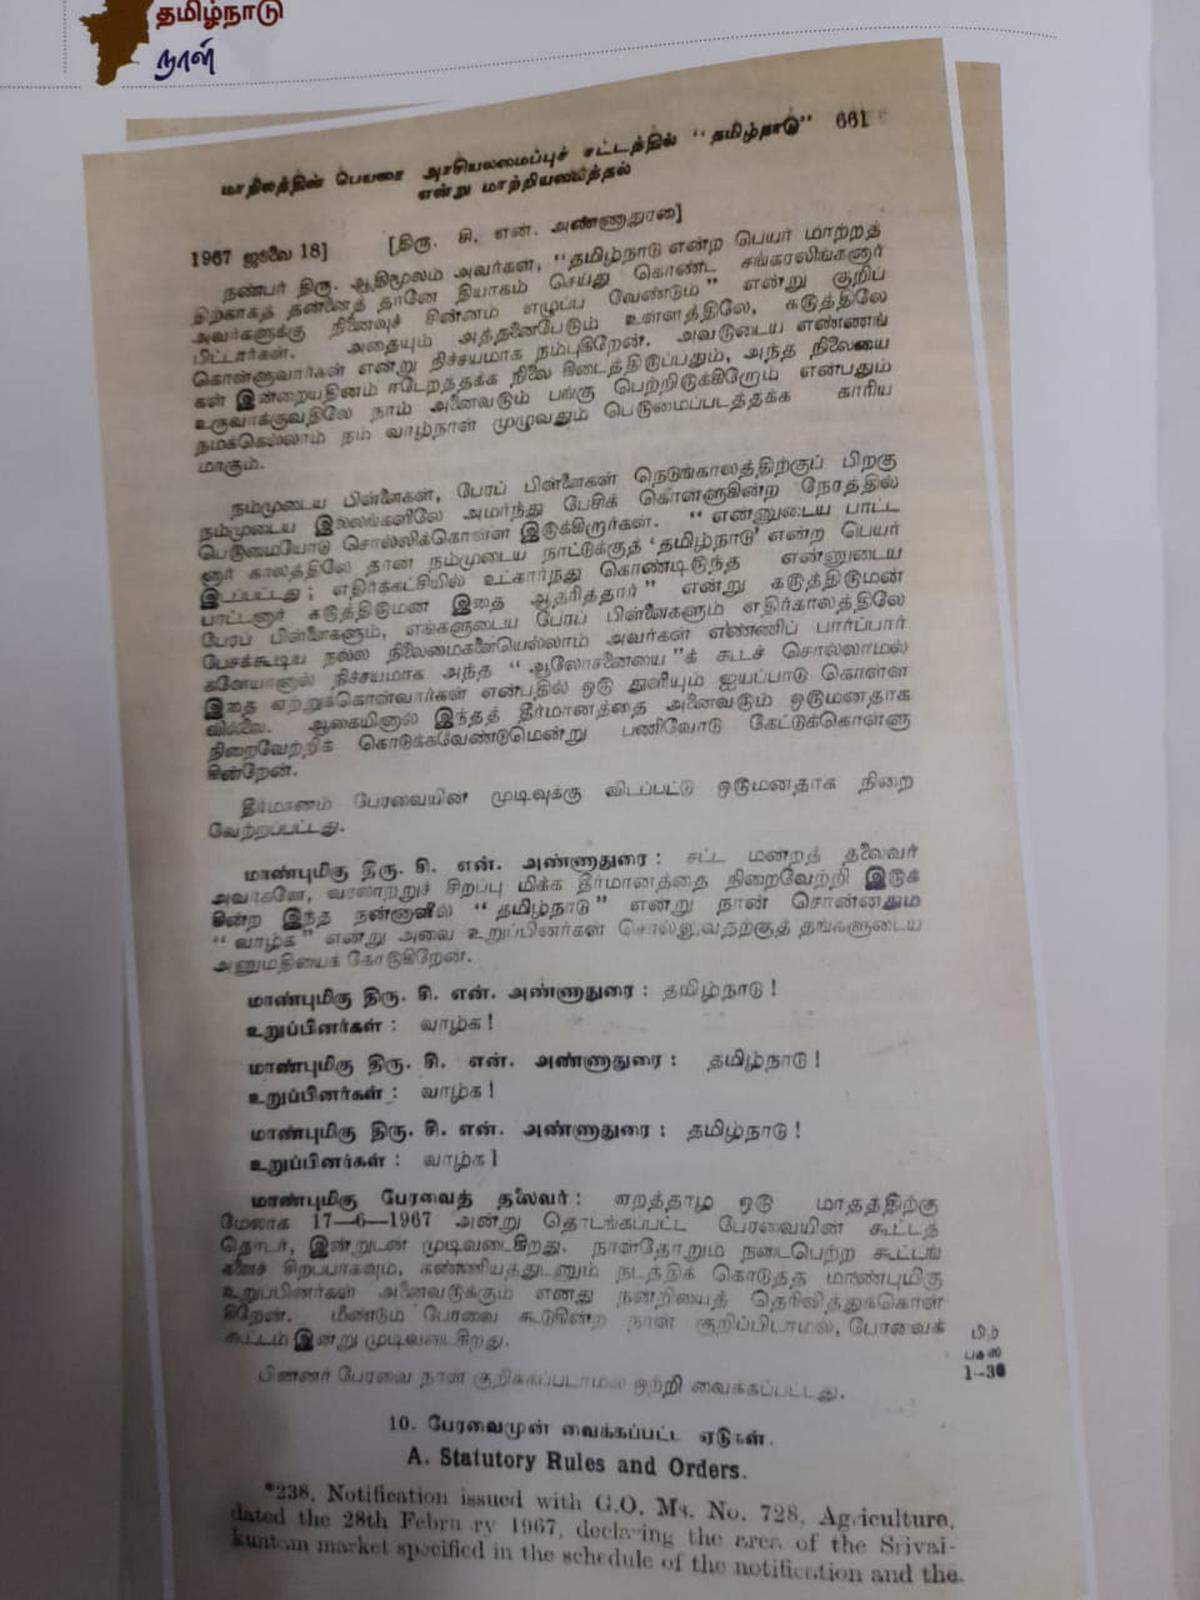 தமிழ்நாடு
நாள்
மாநிலத்தின் பெயரை அரசியலமைப்புச் சட்டத்தில் “தமிழ்நாடு” 661
என்று மாற்றியமைத்தல்
1967 ஜூலை 18] [திரு. சி. என். அண்ணாதுரை]
நண்பர் திரு. ஆதிமூலம் அவர்கள், “தமிழ்நாடு என்ற பெயர் மாற்றத்
திற்காகத் தன்னைத் தானே தியாகம் செய்து கொண்ட சங்கரலிங்கனார்
அவர்களுக்கு நினைவுச் சின்னம் எழுப்ப வேண்டும்” என்று குறிப்
பிட்டார்கள். அதையும் அத்தனைபேரும் உள்ளத்திலே, கருத்திலே
கொள்ளுவார்கள் என்று நிச்சயமாக நம்புகிறேன். அவருடைய எண்ணங்
கள் இன்றையதினம் ஈடேறத்தக்க நிலை கிடைத்திருப்பதும், அந்த நிலையை
உருவாக்குவதிலே நாம் அனைவரும் பங்கு பெற்றிருக்கிறோம் என்பதும்
நமக்கெல்லாம் நம் வாழ்நாள் முழுவதும் பெருமைப்படத்தக்க காரிய
மாகும்.
நம்முடைய பிள்ளைகள், பேரப் பிள்ளைகள் நெடுங்காலத்திற்குப் பிறகு
நம்முடைய இல்லங்களிலே அமர்ந்து பேசிக் கொள்ளுகின்ற நேரத்தில்
பெருமையோடு சொல்லிக்கொள்ள இருக்கிறார்கள். “என்னுடைய பாட்ட
னார் காலத்திலே தான் நம்முடைய நாட்டுக்குத் ‘தமிழ்நாடு’ என்ற பெயர்
இடப்பட்டது ; எதிர்க்கட்சியில் உட்கார்ந்து கொண்டிருந்த என்னுடைய
பாட்டனார் கருத்திருமன் இதை ஆதரித்தார்” என்று கருத்திருமன்
பேரப் பிள்ளைகளும், எங்களுடைய பேரப் பிள்ளைகளும் எதிர்காலத்திலே
பேசக்கூடிய நல்ல நிலைமைகளையெல்லாம் அவர்கள் எண்ணிப் பார்ப்பார்
களேயானால் நிச்சயமாக அந்த “ஆலோசனையை”க் கூடச் சொல்லாமல்
இதை ஏற்றுக்கொள்வார்கள் என்பதில் ஒரு துளியும் ஐயப்பாடு கொள்ள
வில்லை. ஆகையினால் இந்தத் தீர்மானத்தை அனைவரும் ஒருமனதாக
நிறைவேற்றிக் கொடுக்கவேண்டுமென்று பணிவோடு கேட்டுக்கொள்ளு
கின்றேன்.
தீர்மானம் பேரவையின் முடிவுக்கு விடப்பட்டு ஒருமனதாக நிறை
வேற்றப்பட்டது.
மாண்புமிகு திரு. சி. என். அண்ணாதுரை : சட்ட மன்றத் தலைவர்
அவர்களே, வரலாற்றுச் சிறப்பு மிக்க தீர்மானத்தை நிறைவேற்றி இருக்
கின்ற இந்த நன்னாளில் “தமிழ்நாடு” என்று நான் சொன்னதும்
“வாழ்க” என்று அவை உறுப்பினர்கள் சொல்லுவதற்குத் தங்களுடைய
அனுமதியைக் கோருகிறேன்.
மாண்புமிகு திரு. சி. என். அண்ணாதுரை : தமிழ்நாடு !
உறுப்பினர்கள் : வாழ்க !
மாண்புமிகு திரு. சி. என். அண்ணாதுரை : தமிழ்நாடு !
உறுப்பினர்கள் : வாழ்க !
மாண்புமிகு திரு. சி. என். அண்ணாதுரை : தமிழ்நாடு !
உறுப்பினர்கள் : வாழ்க !
மாண்புமிகு பேரவைத் தலைவர் : ஏறத்தாழ ஒரு மாதத்திற்கு
மேலாக 17—6—1967 அன்று தொடங்கப்பட்ட பேரவையின் கூட்டத்
தொடர், இன்றுடன் முடிவடைகிறது. நாள்தோறும் நடைபெற்ற கூட்டங்
களைச் சிறப்பாகவும், கண்ணியத்துடனும் நடத்திக் கொடுத்த மாண்புமிகு
உறுப்பினர்கள் அனைவருக்கும் எனது நன்றியைத் தெரிவித்துக்கொள்
கிறேன். மீண்டும் பேரவை கூடுகின்ற நாள் குறிப்பிடாமல், பேரவைக்
கூட்டம் இன்று முடிவடைகிறது.
பிற்
பகல்
1-30
பின்னர் பேரவை நாள் குறிக்கப்படாமல் ஒற்றி வைக்கப்பட்டது.
10. பேரவைமுன் வைக்கப்பட்ட ஏடுகள்.
A. Statutory Rules and Orders.
*238. Notification issued with G.O. Ms. No. 728, Agriculture,
dated the 28th February 1967, declaring the area of the Srivai-
kuntam market specified in the schedule of the notification and the